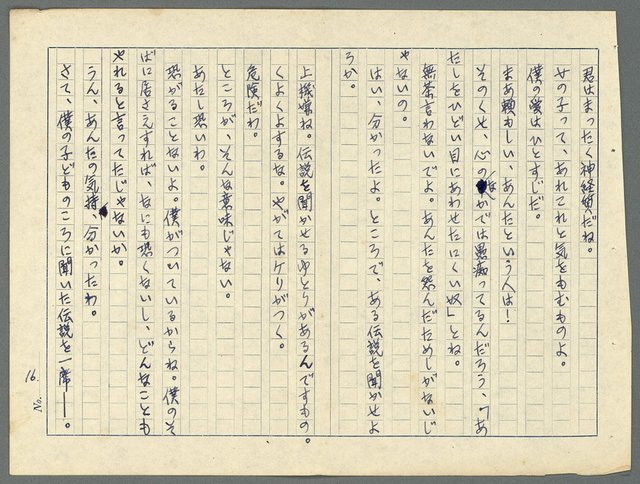 君はまったく神経質だね。
女の子って、あれこれと気をもむものよ。
僕の愛はひとすじだ。
まあ頼もしい、あんたという人は！
そのくせ、心のなかでは愚痴ってるんだろう、「あ
たしをひどい目にあわせたにくい奴」とね。
無茶言わないでよ。あんたを怨んだためしがないじ
ゃないの。
はい、分かったよ。ところで、ある伝説を聞かせよ
うか。
上機嫌ね。伝説を聞かせるゆとりがあるんですもの。
くよくよするな。やがてはケリがつく。
危険だわ。
ところが、そんな意味じゃない。
あたし恐いわ。
恐がることないよ。僕がついているからね。僕のそ
ばに居さえすれば、なにも恐くないし、どんなことも
やれると言ってたじゃないか。
うん、あんたの気持、分かったわ。
さて、僕の子どものころに聞いた伝説を一席――。
16.
No.